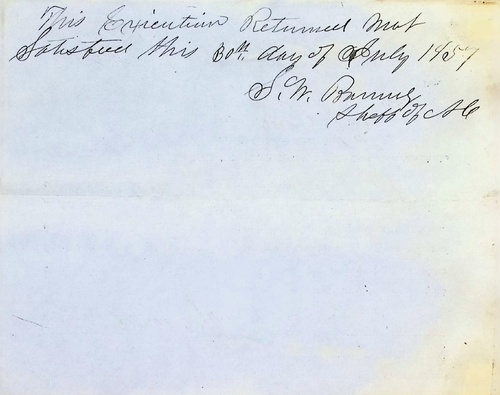 This Execution Returned Not
Satisfied this 30th day of July 1857
S. W.
Shff of